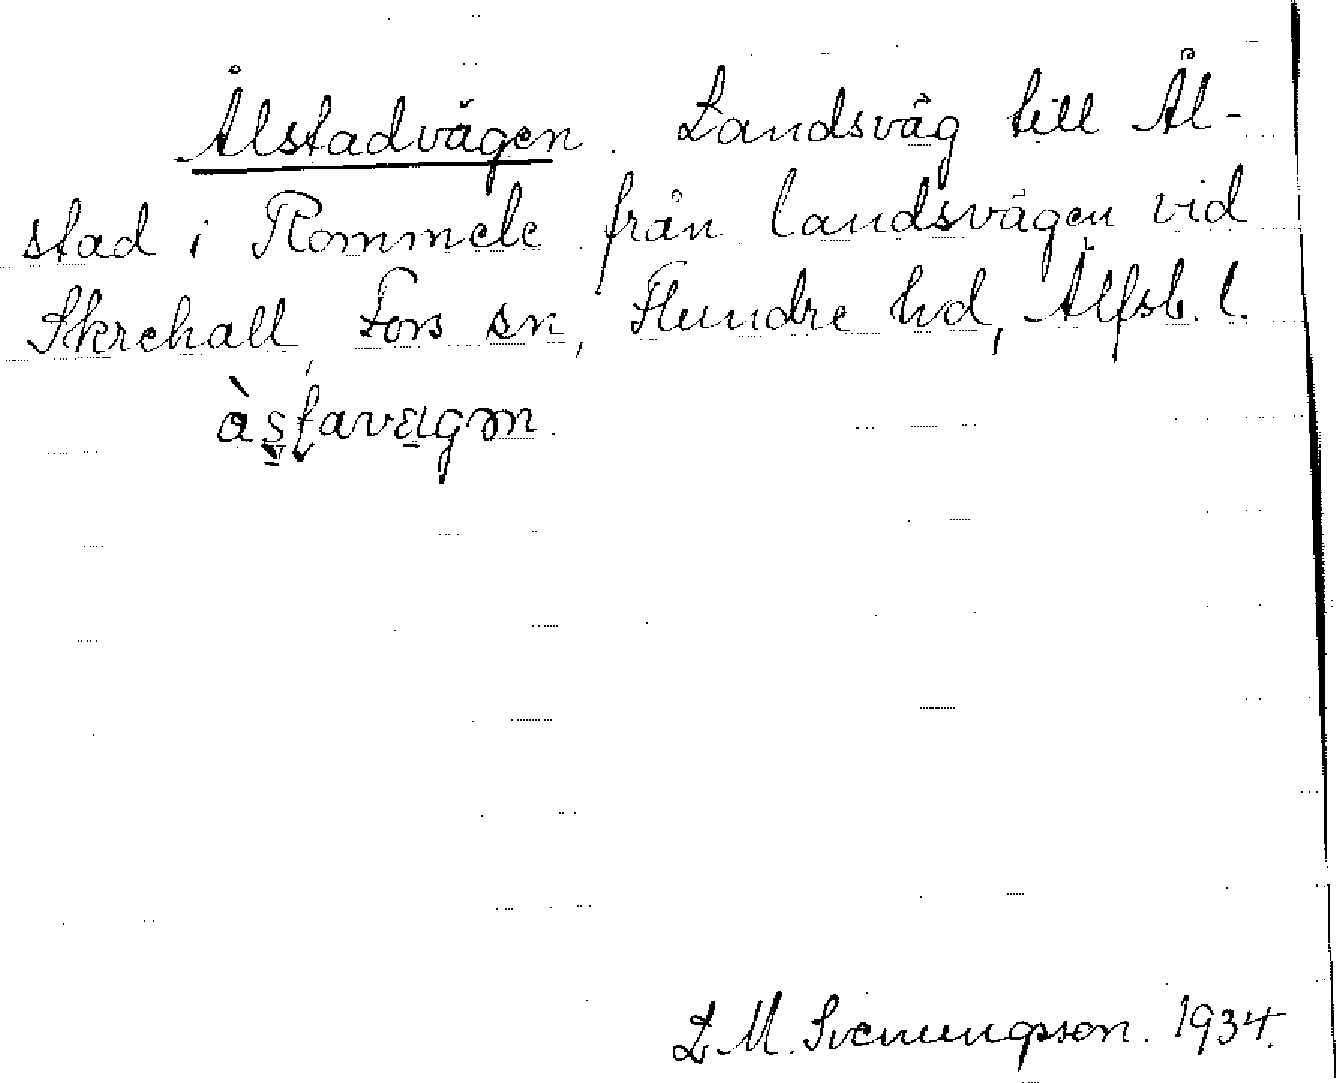 Ålstadvägen. Landsväg till Ål-
stad i Rommele från landsvägen vid
Skrehall, Fors sn, Flundre hd, Älfsb. l.
L. M. Svenungsson. 1934.